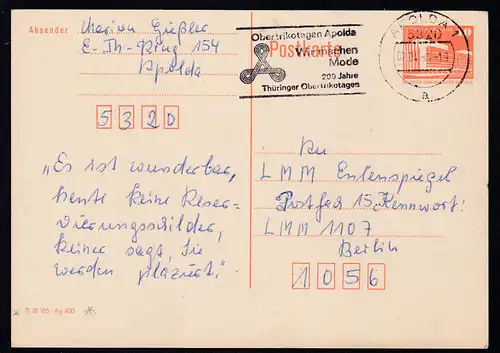 Absender Marion Gießler
E.-Th.-Ring 154
Apolda
5320
„Es ist wunderbar,
heute keine Reser-
vierungsschilder,
keiner sagt, Sie
werden plaziert."
III 18 185 Ag 400
Postkarte
Obertrikotagen Apolda
Wir machen
Mode
200 Jahre
Thüringer Obertrikotagen
APOLDA 1
5320
a
An
LMM Eulenspiegel
Postfach 15, Kennwort:
LMM 1107
Berlin
1056